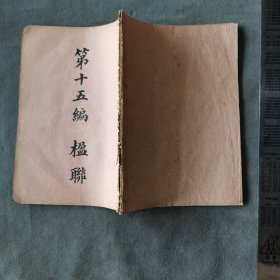 第十五編 楹聯